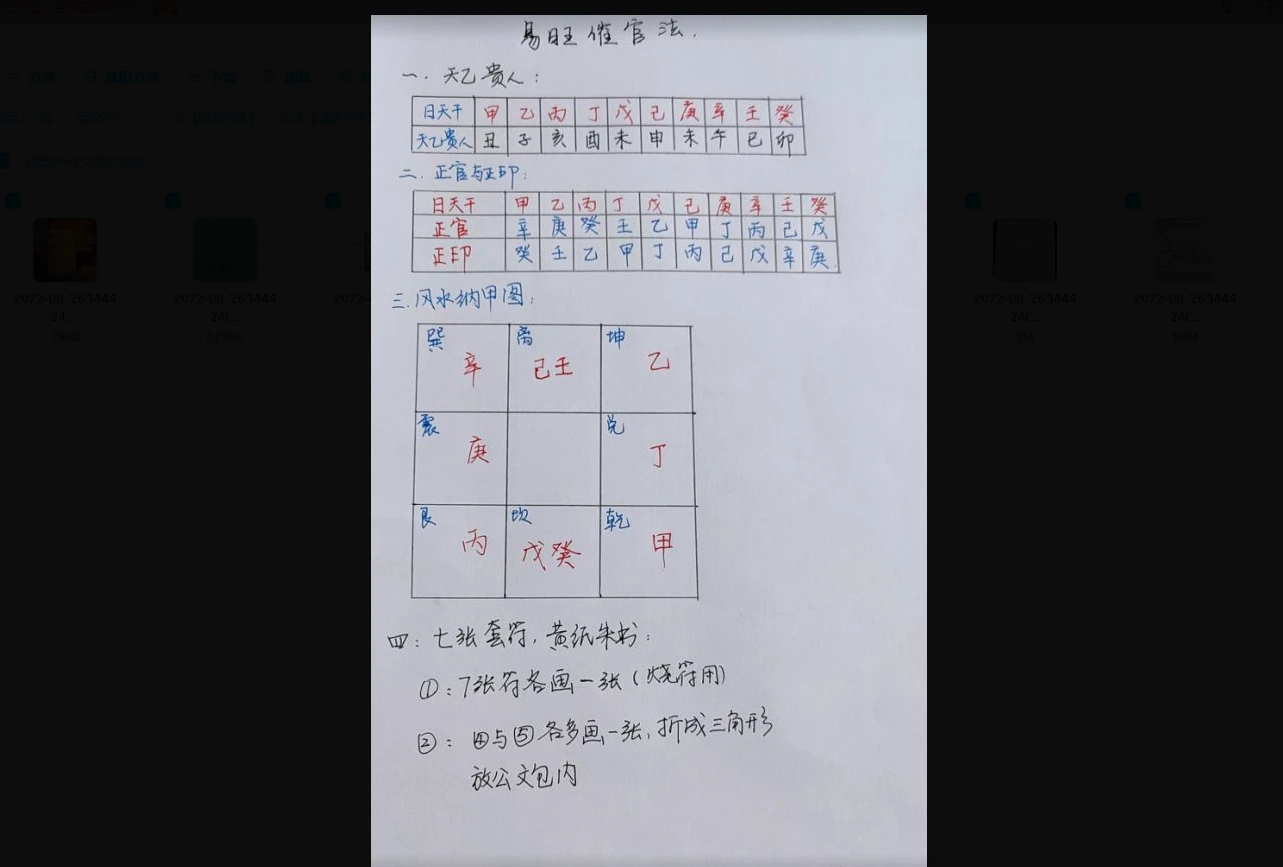 易旺催官法.
一. 天乙贵人:
日天干 甲 乙 丙 丁 戊 己 庚 辛 壬 癸
天乙贵人 丑 子 亥 酉 未 申 未 午 巳 卯
二. 正官与正印:
日天干 甲 乙 丙 丁 戊 己 庚 辛 壬 癸
正官 辛 庚 癸 壬 乙 甲 丁 丙 己 戊
正印 癸 壬 乙 甲 丁 丙 己 戊 辛 庚
三.风水纳甲图:
巽 离 坤
辛 己壬 乙
震 兑
庚 丁
艮 坎 乾
丙 戊癸 甲
四: 七张套符, 黄纸朱书:
①: 7张符各画一张(烧符用)
②: ④与⑤各多画一张, 折成三角形
放公文包内
2022-08-26 1444
24(...
2022-08-26 1444
24(...
2022-0
2022-08-26 1444
24(...
2022-08-26 1444
24(...